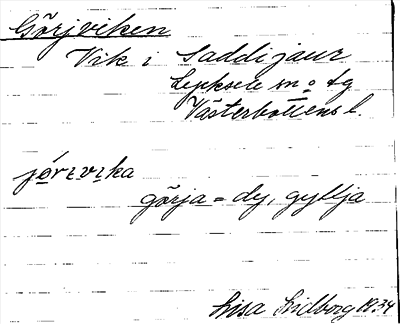 Görjviken
Vik i Saddijaur
Lycksele sn o tg
Västerbottens l.
jó̱rɪvı̱ka
görja = dy, gyttja
Lisa Lidborg 1934